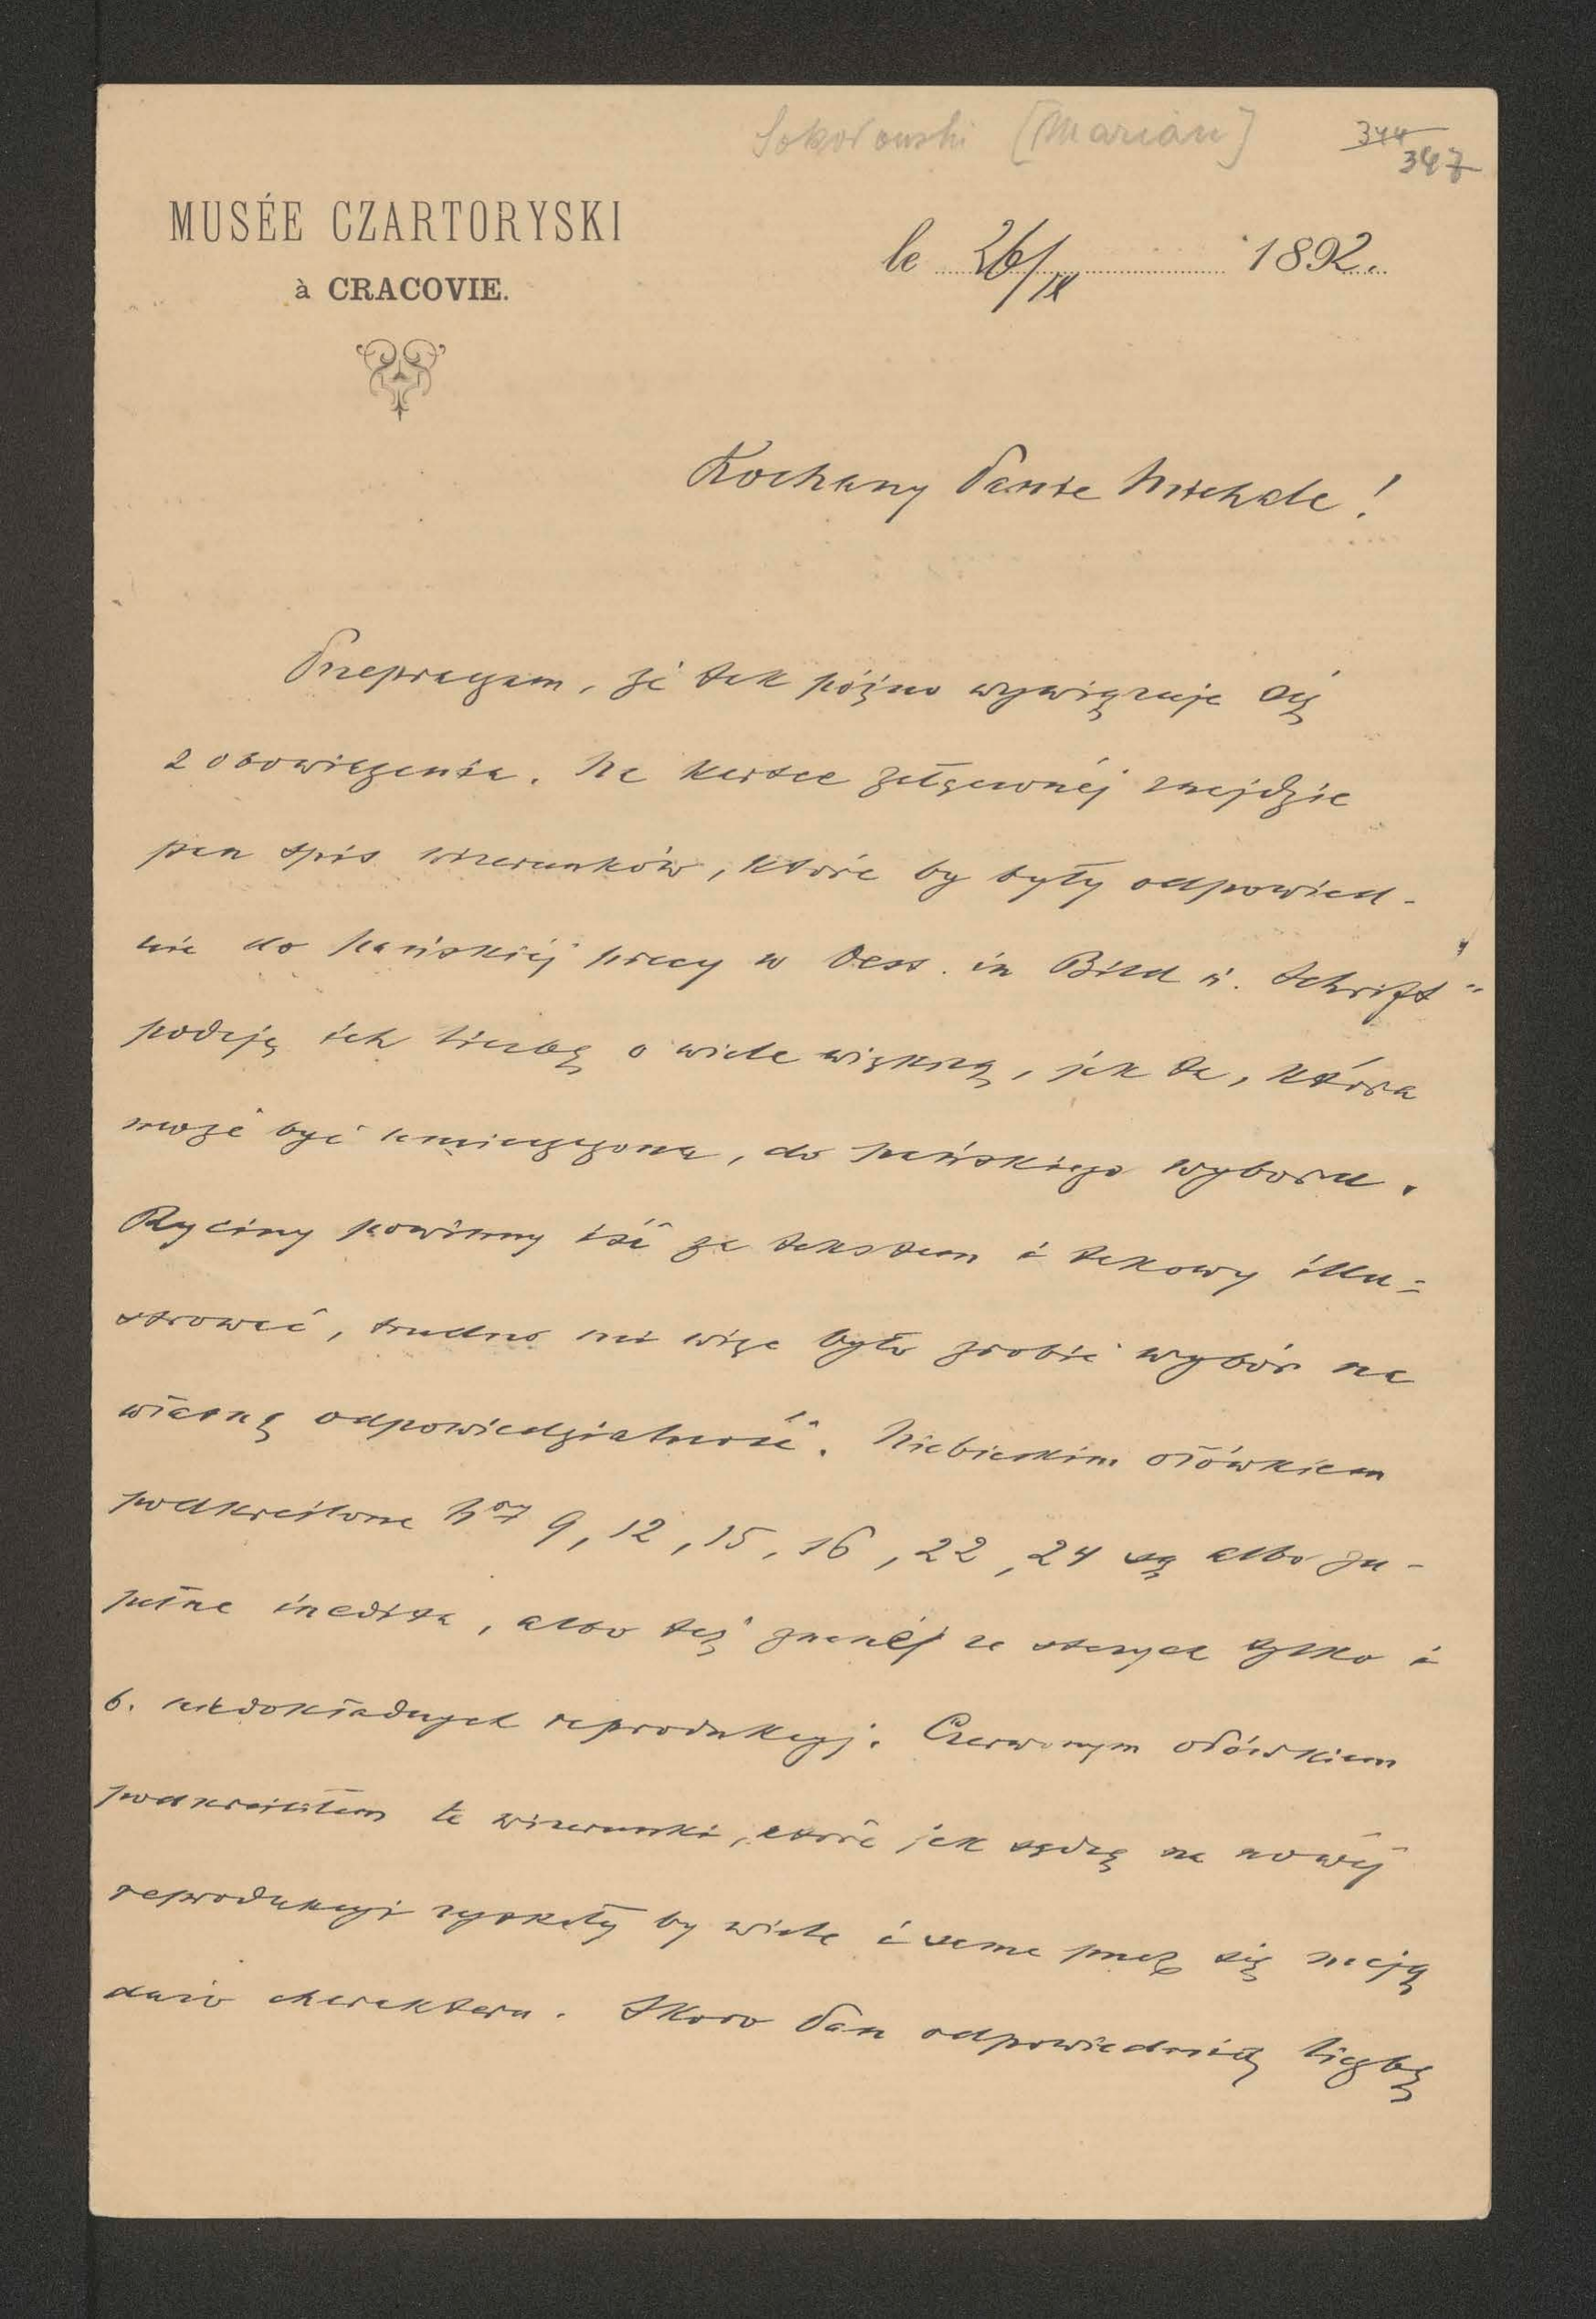 Sokołowski [Marian]
344
347
MUSÉE CZARTORYSKI
à CRACOVIE.
le 26/IX 1892.
Kochany Panie Michale!
Przepraszam, że tak późno wywiązuje się
z obowiązania. Na kartce załączonéj znajdzie
pan spis wizerunków, które by były odpowied-
nie do pańskiéj pracy w Oest. in Bild u. Schrift"
podaję ich liczbę o wiele większą, jak ta, która
może być umieszczona, do pańskiego wyboru.
Ryciny powinny iść za tekstem i takowy illu-
strować, trudno mi więc było zrobić wybór na
własną odpowiedzialność. Niebieskim ołówkiem
podkreślone Nry 9, 12, 15, 16, 22, 24 są albo zu-
pełne inedita, albo też znane ze starych tylko i
b. niedokładnych reprodukcyj. Czerwonym ołówkiem
podkreśliłem te wizerunki, które jak sądzę na nowéj
reprodukcyi zyskały by wiele i same przez się mają
dużo charakteru. Skoro Pan odpowiednią liczbę